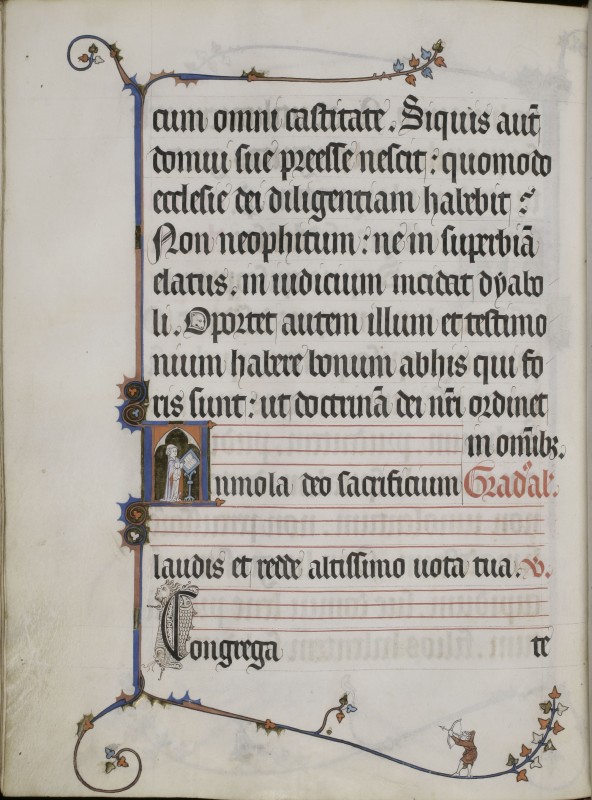 cum omni castitate. Siquis aut̃
domui sue preesse nescit: quomodo
ecclesie dei diligentiam habebit?
Non neophitum: ne in superbiã
elatus. in iudicium incidat dyabo
li. Oportet autem illum et testimo
nium habere bonum abhis qui fo
ris sunt: ut doctrinã dei nr̃i ordinet
in om̃ibꝫ.
Immola deo sacrificium Grad'al'.
laudis et redde altissimo uota tua. V.
Congrega te